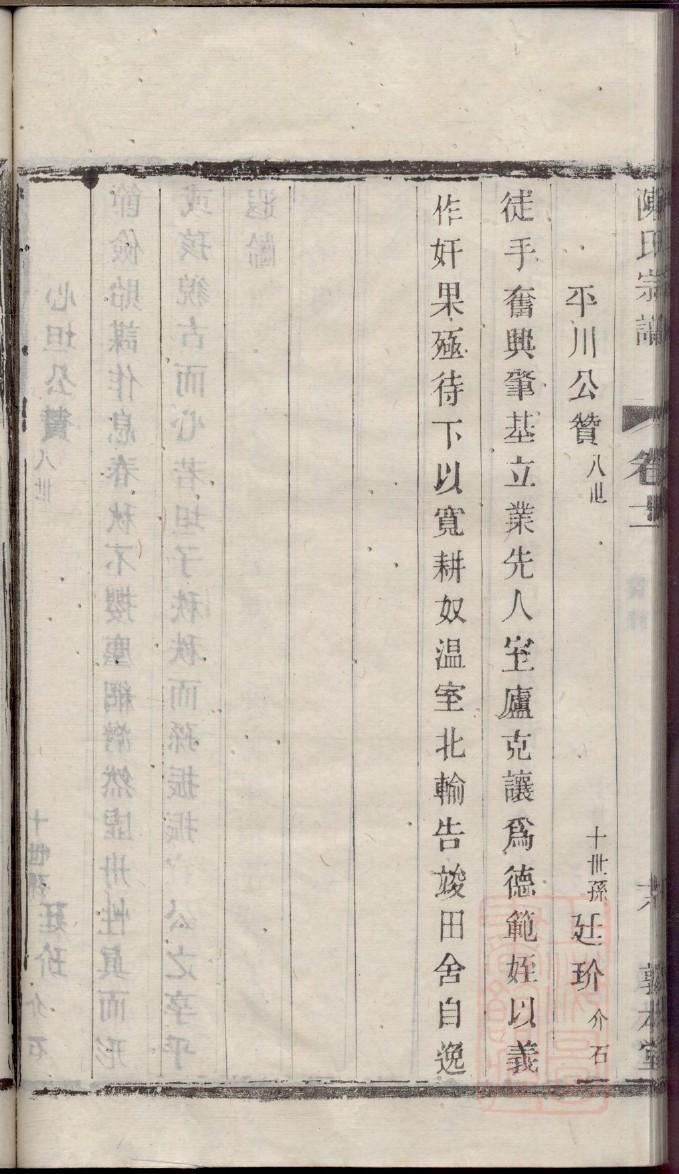 陳氏宗譜 卷十二 六 敦本堂
平川公贊 八世 十世孫 廷玠 介石
徒手奮興肇基立業先人室廬克讓爲德範姪以義
作奸果殛待下以寬耕奴溫室北輸告竣田舍自逸